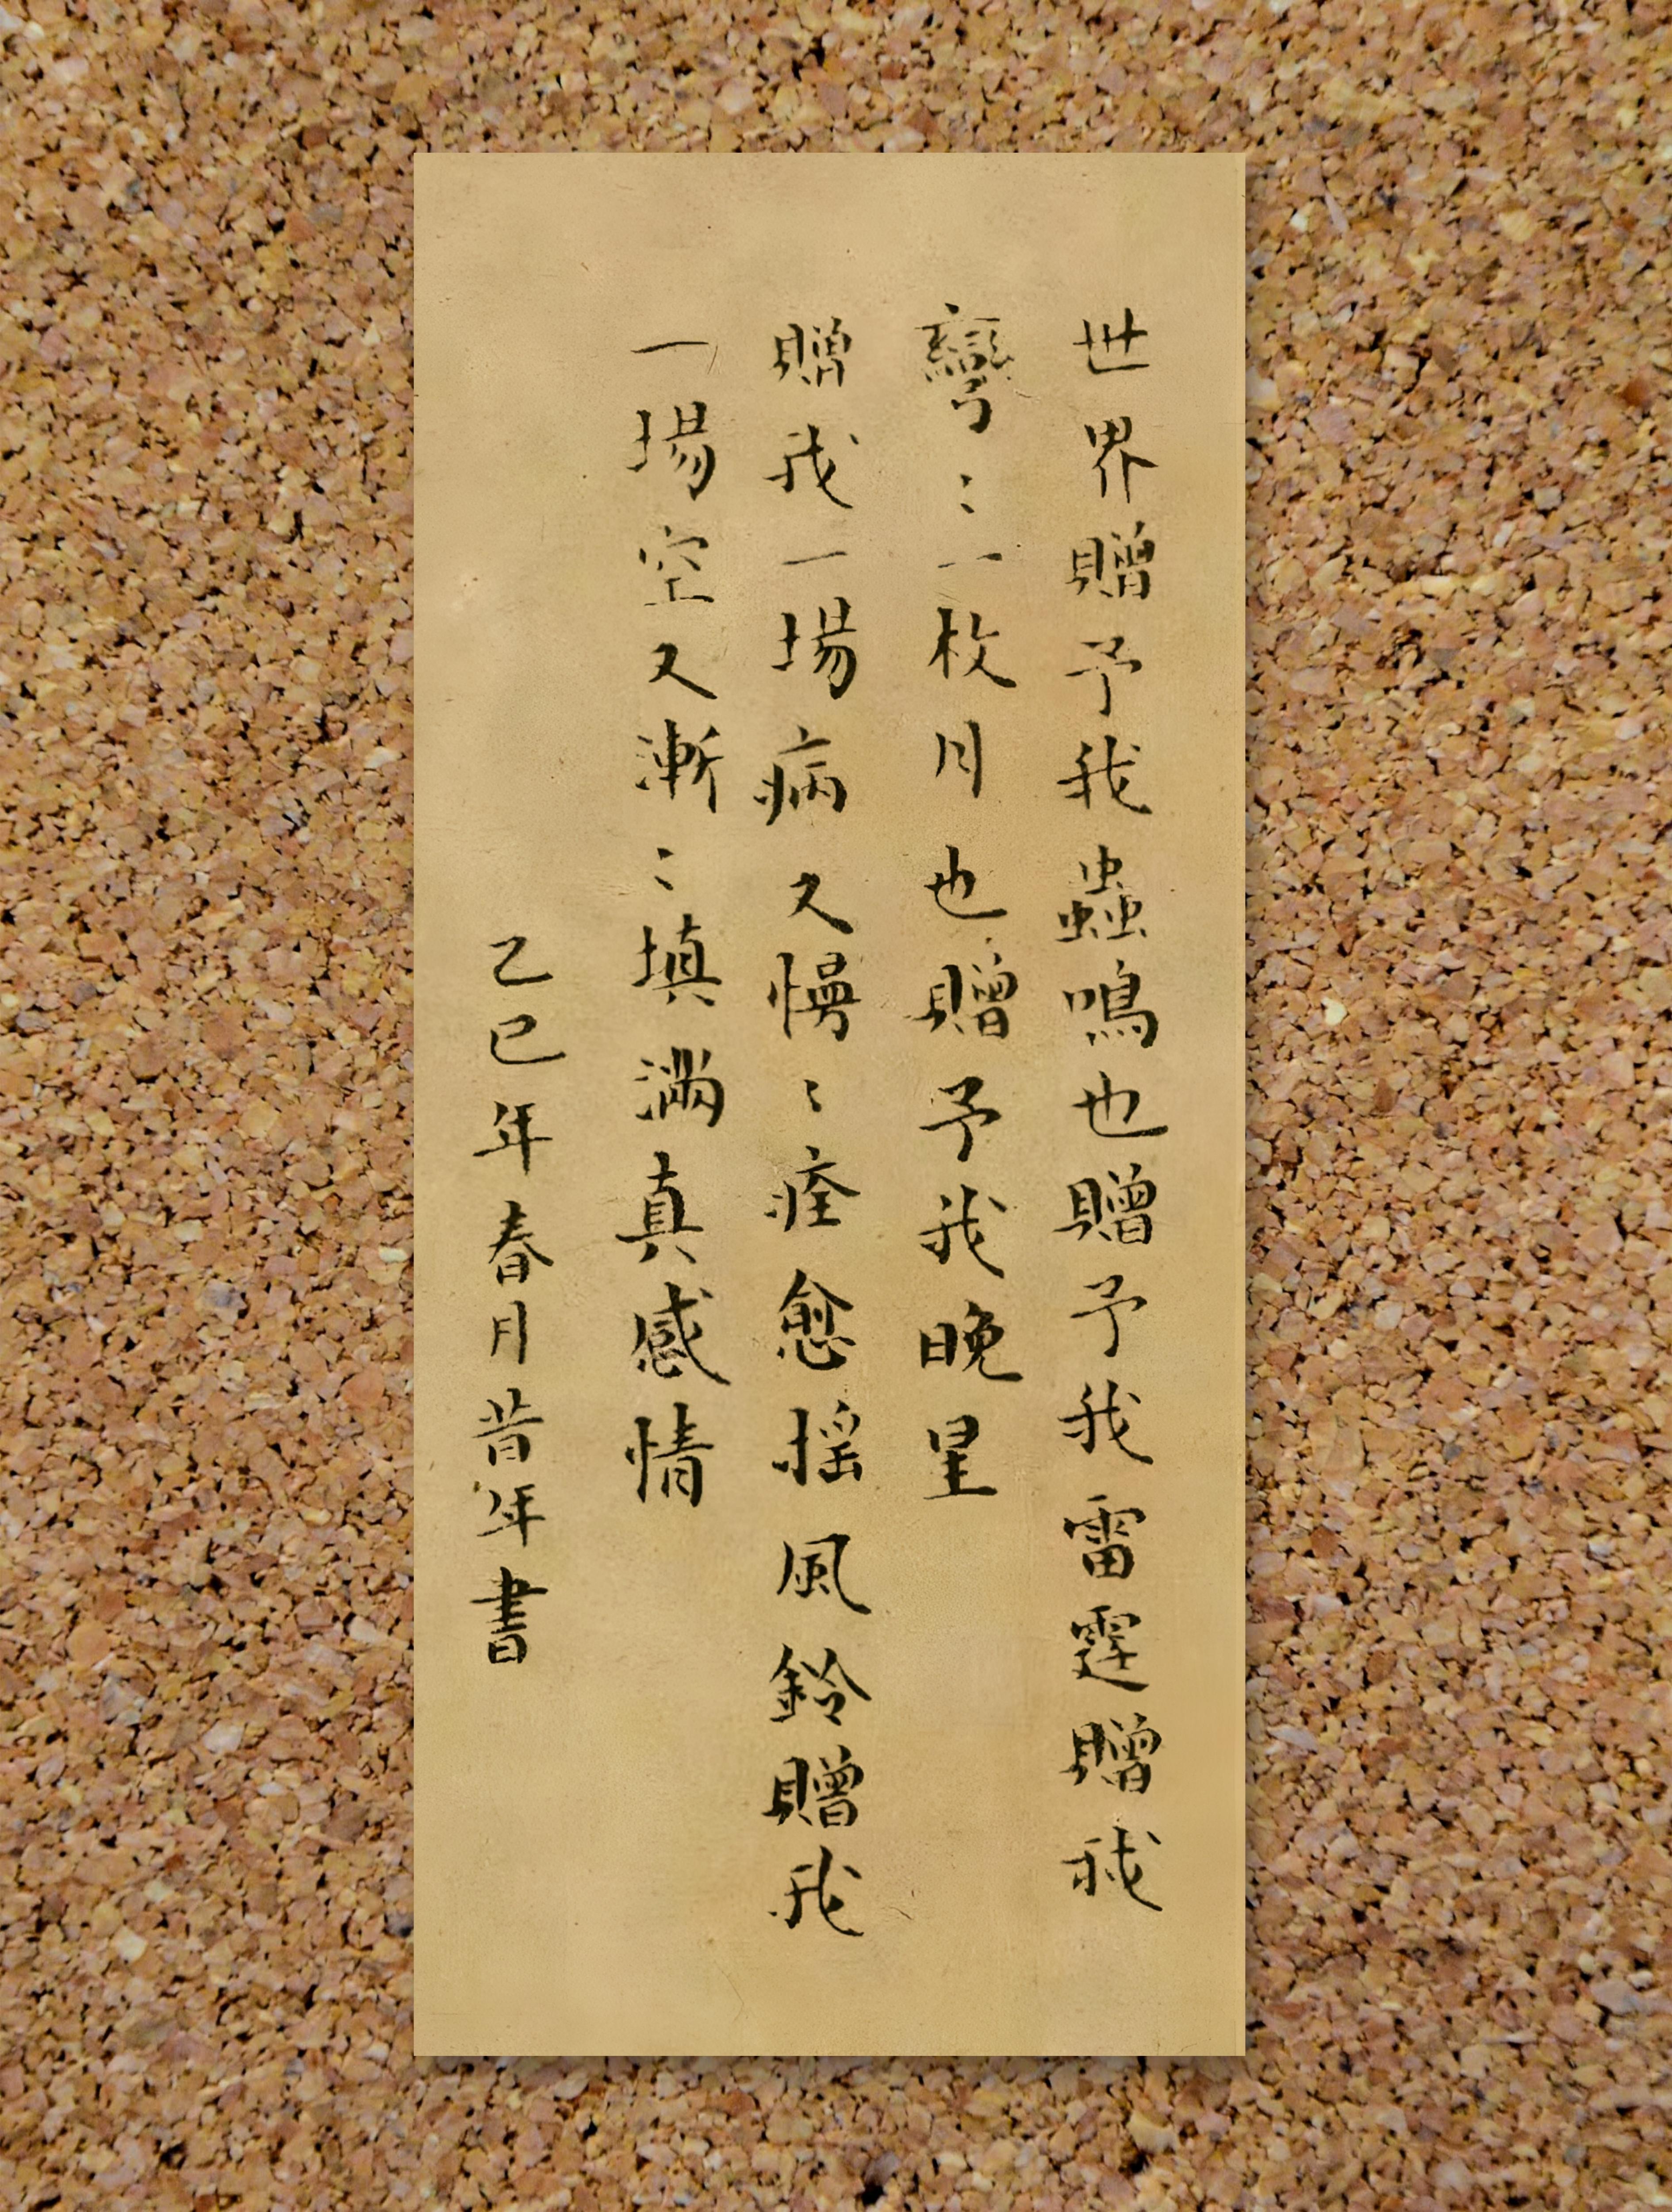 世界贈予我蟲鳴也贈予我雷霆贈我
彎〻一枚月也贈予我晚星
贈我一場病又慢〻痊愈搖風鈴贈我
一場空又漸〻填滿真感情
乙巳年春月昔年書